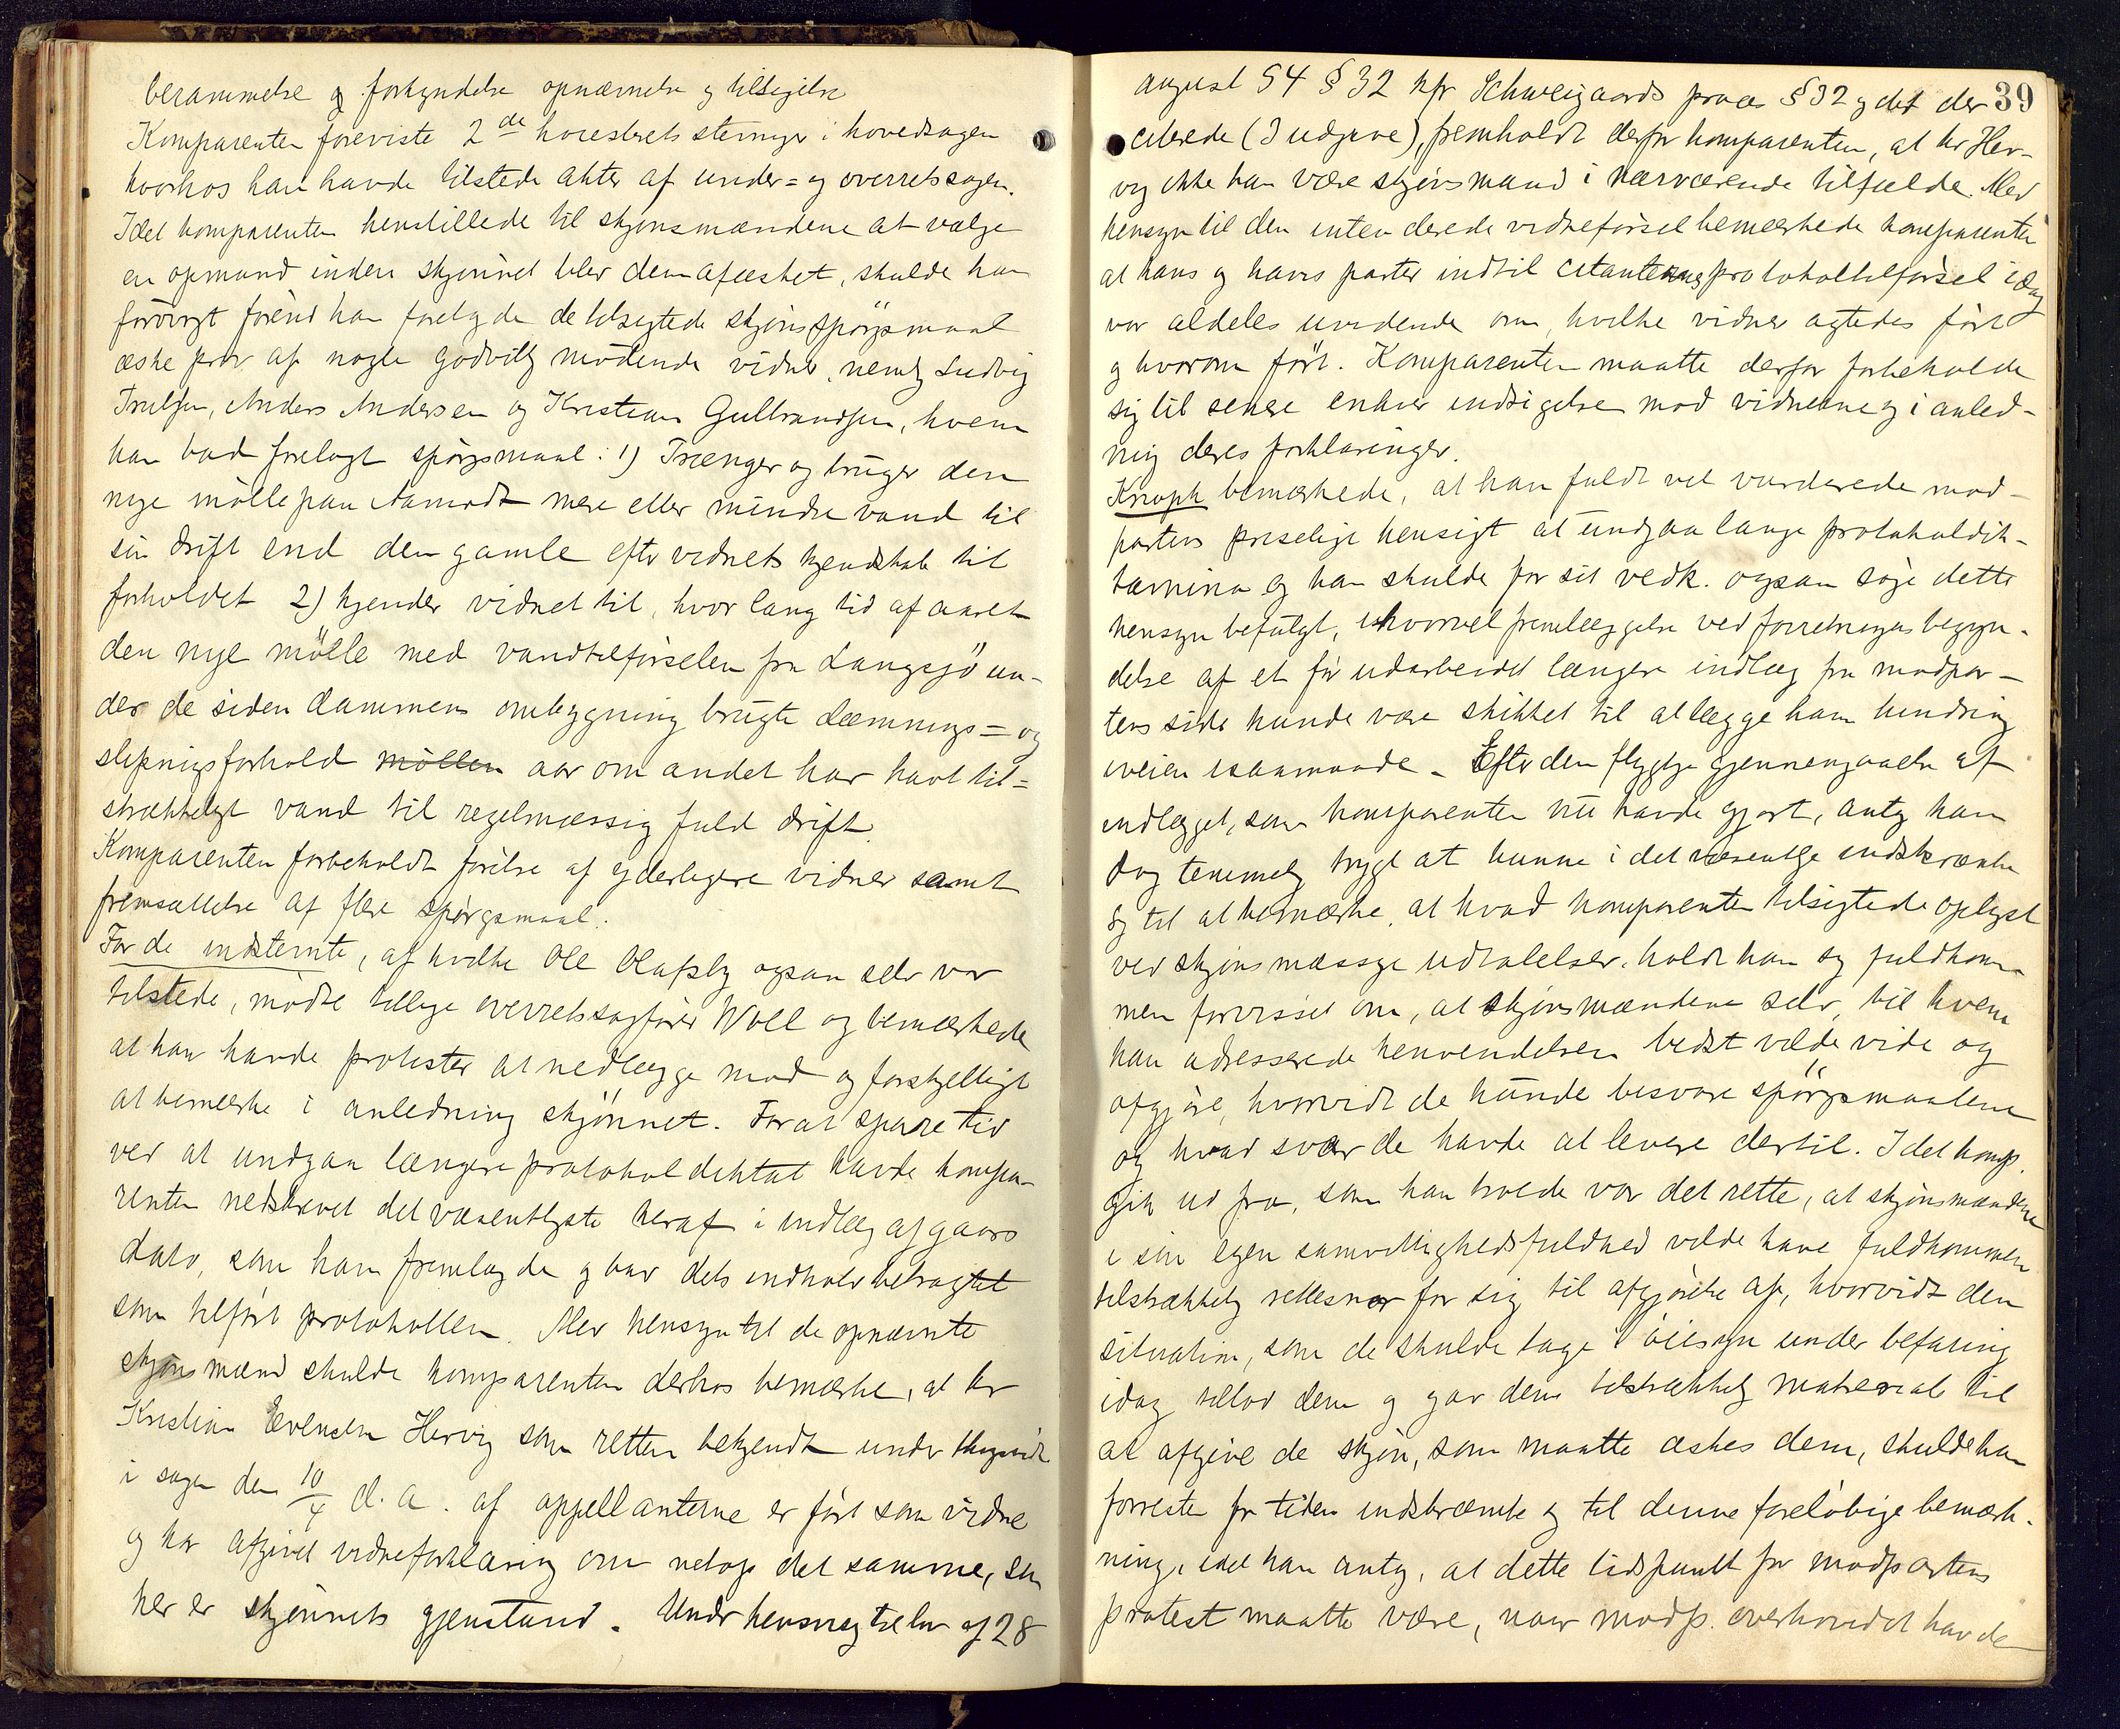 berammelse og forkyndelse opnævnelse og tilsigelse
Komparenten foreviste 2de høiesteretsstevninger i hovedsagen
hvorhos han havde tilstede akter af under= og overretssagen.
Idet komparenten henstillede til skjønsmændene at vælge
en opmand inden skjønnet blev dem afæsket, skulde han
forøvrigt førend han forelagde de tilsigtede skjønsspørgsmaal
æske prov af nogle godvillig mødende vidner, nemlig Ludvig
Trulsen, Anders Andersen og Kristian Gulbrandsen, hvem
han bad forelagt spørgsmaal: 1) Trænger og bruger den
nye mølle paa Aamodt mere eller mindre vand til
sin drift end den gamle efter vidnets kjendskab til
forholdet 2) kjender vidnet til, hvor lang tid af aaret
den nye mølle med vandtilførselen fra Langsjø un-
der de siden dammens ombygning brugte dæmnings= og
slipningsforhold møllen aar om andet har havt til=
strækkeligt vand til regelmæssig fuld drift.
Komparenten forbeholdt førelse af yderligere vidner samt
fremsættelse af flere spørgsmaal.
For de indstevnte, af hvilke Ole Olafsby ogsaa selv var
tilstede, mødte tillige overretssagfører Woll og bemærkede
at han havde protester at nedlægge mod og forskjelligt
at bemerke i anledning skjønnet. For at spare tid
ved at undgaa længere protokoldiktat havde kompa-
renten nedskrevet det væsentligste heraf i indlæg af gaars
dato, som han fremlagde og bad dets indhold betragtet
som tilført protokollen. Med hensyn til de opnævnte
skjønsmænd skulde komparenten derhos bemerke, at hr
Kristian Evensen Hervig som retten bekjendt under thingsvidne
i sagen den 10/4 d.a. af appellanterne er ført som vidne
og har afgivet vidneforklaring om netop det samme, som
her er skjønnets gjenstand. Under henvisng til lov af 28
39
august 54 § 32 kfr Schweigaards proces § 32 og det der
citerede (3 udgave), fremholdt derfor komparenten, at hr Her-
vig ikke kan være skjønsmand i nærværende tilfælde. Med
hensyn til den intenderede vidneførsel bemærkede komparenten
at hans og hans parter indtil citanternes protokoltilførsel idag
var aldeles uvidende om, hvilke vidner agtedes ført
og hvorom ført. Komparenten maatte derfor forbeholde
sig til senere enhver indsigelse mod vidnerne og i anled-
ning deres forklaringer.
Knoph bemærkede, at han fuldt vel vurderede mod-
partens priselige hensigt at undgaa lange protokoldik-
tamina og han skulde for sit vedk. ogsaa søge dette
hensyn befulgt, ihvorvel fremlæggelse ved forretningens begyn-
delse af et før udarbeidet længere indlæg fra modpar-
tens side kunde være skikket til at lægge ham hindring
iveien isaamaade. Efter den flygtige gjennemgaaelse af
indlægget, som komparenten nu havde gjort, antog han
dog temmelig trygt at kunne i det væsentlige indskrænke
sig til at bemærke, at hvad komparenten tilsigtede oplyst
ved skjønsmæssige udtalelser, holdt han sig fuldkom-
men forvisset om, at skjønsmændene selv, til hvem
han adresserede henvendelsen bedst vilde vide og
afgjøre, hvorvidt de kunde besvare spørgsmaalene
og hvad svar de havde at levere dertil. Idet komp.
gik ud fra, som han troede var det rette, at skjønsmændene
i sin egen samvittighedsfuldhed vilde have fuldkommen
tilstrækkelig rettesnor for sig til afgjørelse af, hvorvidt den
situation, som de skulde tage i øiesyn under befaring
idag tillod dem og gav dem tilstrækkelig materiale til
at afgive de skjøn, som maatte æskes dem, skulde han
forresten for tiden indskrænke sig til denne foreløbige bemærk-
ning, idet han antog, at dette tidspunkt for modpartens
protest maatte være, naar modp. overhovedet havde